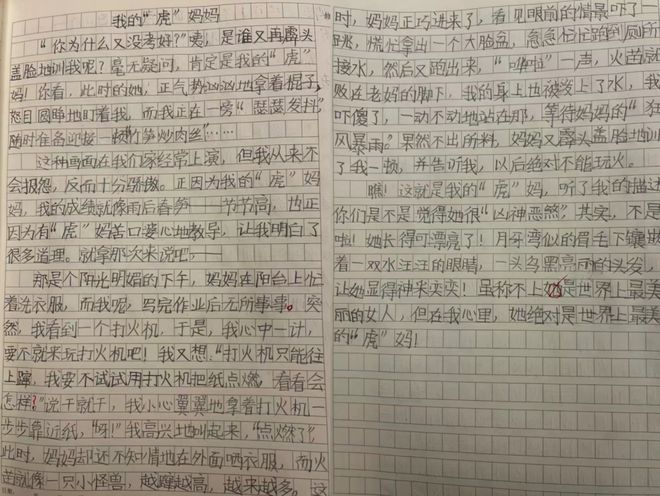 我的“虎”妈妈
“你为什么又没考好?”咦,是谁又再劈头
盖脸地训我呢?毫无疑问,肯定是我的“虎”
妈!你看,此时的她,正气势汹汹地拿着棍子,
怒目圆睁地盯着我,而我正在一旁“瑟瑟发抖”,
随时准备迎接一顿“竹笋炒肉丝”……
这种画面在我们家经常上演,但我从来不
会报怨,反而十分骄傲。正因为我的“虎”妈
妈,我的成绩就像雨后春笋——节节高,也正
因为有“虎”妈苦口婆心地教导,让我明白了
很多道理。就拿那次来说吧——
那是个阳光明媚的下午,妈妈在阳台上忙
着洗衣服,而我呢,写完作业后无所事事。突
然,我看到一个打火机,于是,我心中一计,
要不就来玩打火机吧!我又想:“打火机只能往
上蹿,我要不试试用打火机把纸点燃,看看会
怎样?”说干就干,我小心翼翼地拿着打火机一
步步靠近纸,“呀!”我高兴地叫起来,“点燃了!”
此时,妈妈却还不知情地在外面晒衣服,而火
苗就像一只小怪兽,越蹿越高,越来越多,这
时,妈妈正巧进来了,看见眼前的情景吓了一
跳,慌忙拿出一个大脸盆,急急忙忙跑到厕所
接水,然后又跑出来,“哗啦”一声,火苗就
败在老妈的脚下,我的身上也被泼上了水,我
吓傻了,一动不动地站在那,等待妈妈的“狂
风暴雨。”果然不出所料,妈妈又劈头盖脸地训
了我一顿,并告听我,以后绝对不能玩火。
瞧!这就是我的“虎”妈,听了我的描述
你们是不是觉得她很“凶神恶煞”,其实,不是
啦!她长得可漂亮了!月牙弯似的眉毛下镶嵌
着一双水汪汪的眼睛,一头乌黑亮丽的头发,
让她显得神采奕奕!虽称不上是世界上最美
丽的女人,但在我心里,她绝对是世界上最美
的“虎”妈!